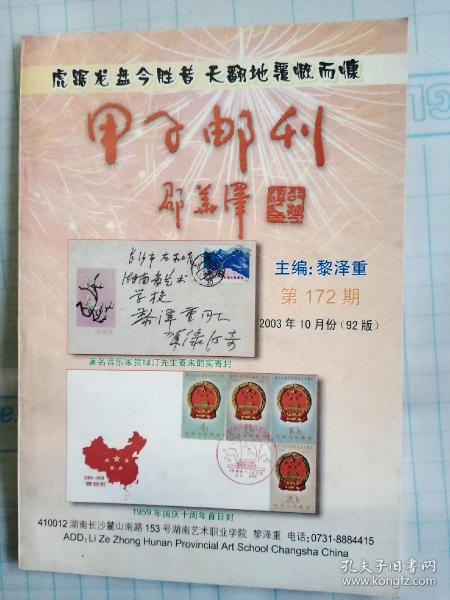 虎踞龙盘今胜昔 天翻地覆慨而慷
甲子邮刊
邵华泽
主编:黎泽重
第 172 期
2003 年 10 月份(92 版)
湖南省艺术
学校
黎泽重同志
著名音乐家贺绿汀先生寄来的实寄封
4分
10分
20分
1959 年国庆十周年首日封
410012 湖南长沙麓山南路 153 号湖南艺术职业学院 黎泽重 电话:0731-8884415
ADD: Li Ze Zhong Hunan Provincial Art School Changsha China
孔夫子旧书网